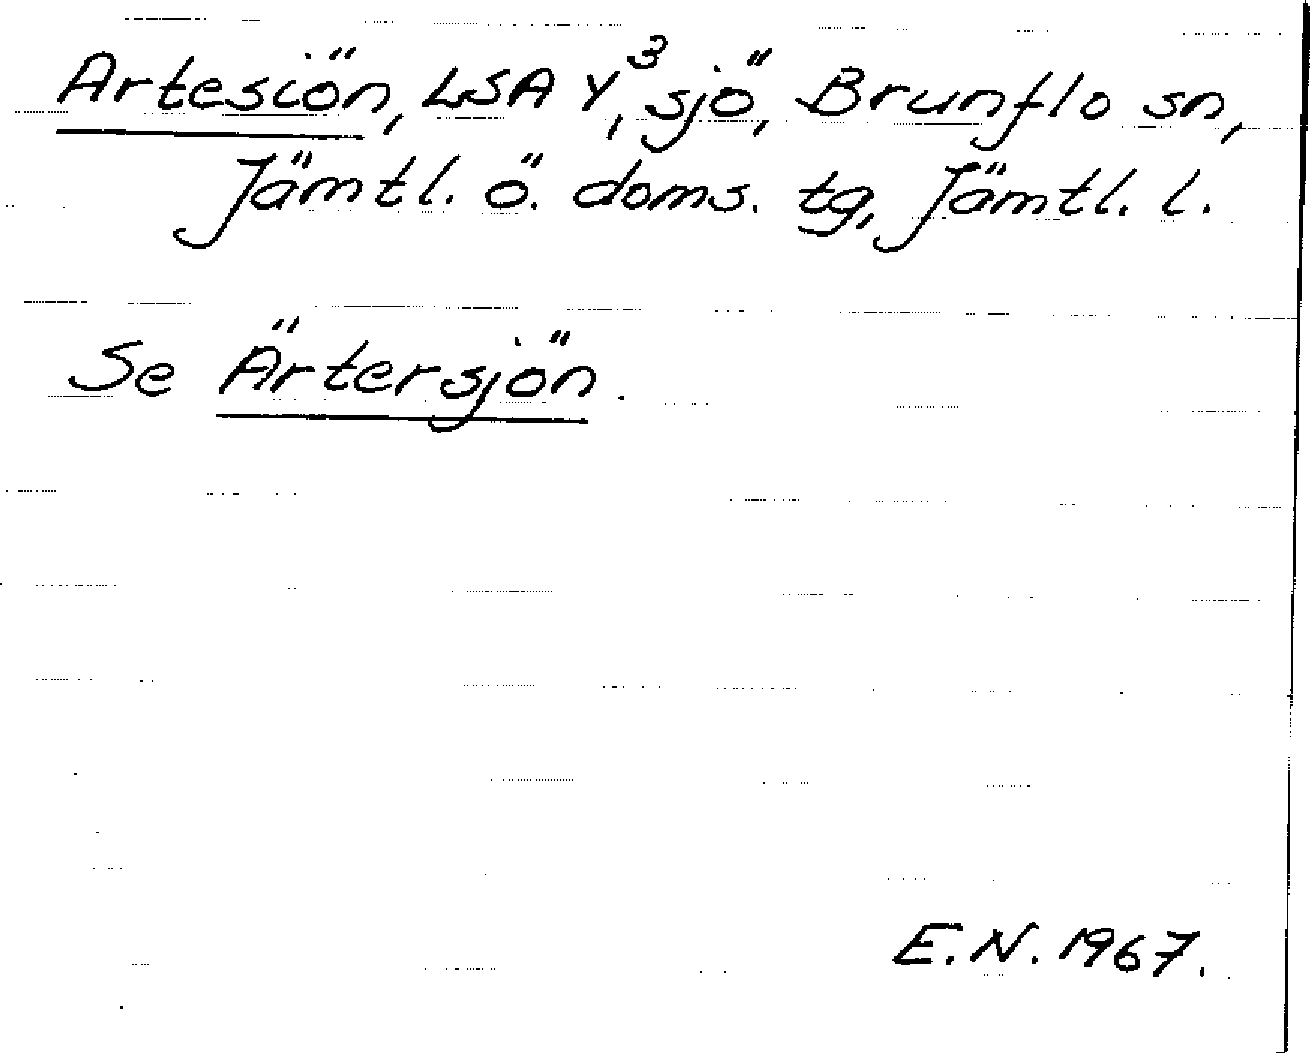 Artesiön, LSA Y³, sjö, Brunflo sn,
Jämtl. ö. doms. tg, Jämtl. l.
Se Ärtersjön.
E.N. 1967.